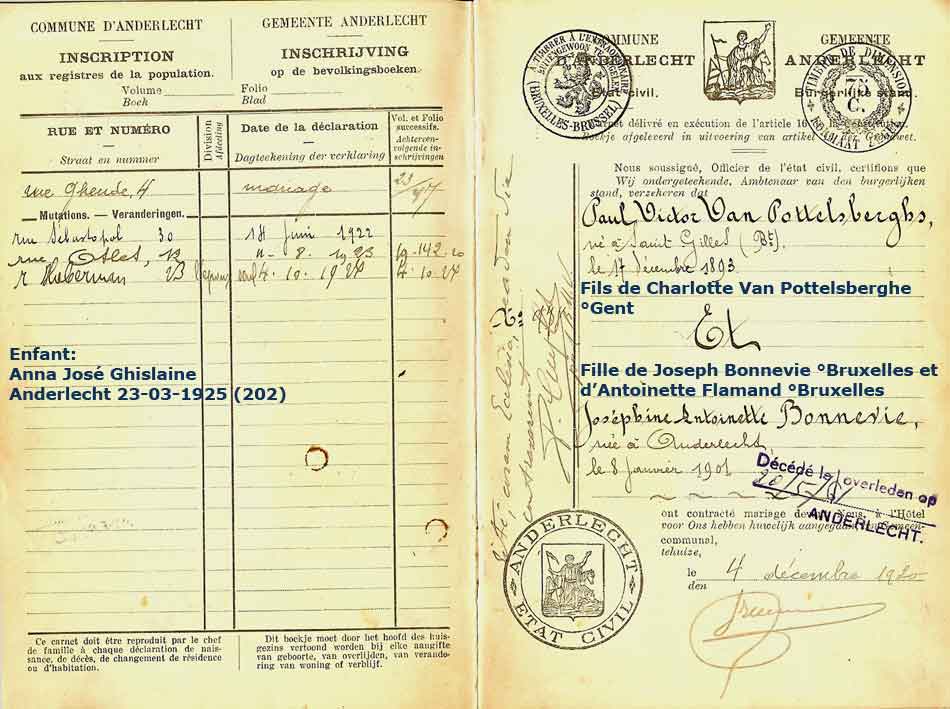 COMMUNE D'ANDERLECHT
GEMEENTE ANDERLECHT
INSCRIPTION
aux registres de la population.
INSCHRIJVING
op de bevolkingsboeken.
Volume
Boek
Folio
Blad
RUE ET NUMÉRO
Straat en nummer
Division
Afdeeling
Date de la déclaration
Dagteekening der verklaring
Vol. et Folio
successifs.
Achtereen-
volgende in-
schrijvingen
rue Gheude, 4
mariage
23
Mutations. — Veranderingen.
rue Sébastopol 30
18 juin 1922
rue Otlet, 12
11 - 8. 1923
19-142
23
4. 10. 1924
4. 10. 24
Enfant:
Anna José Ghislaine
Anderlecht 23-03-1925 (202)
Ce carnet doit être reproduit par le chef
de famille à chaque déclaration de nais-
sance, de décès, de changement de résidence
ou d'habitation.
Dit boekje moet door het hoofd des huis-
gezins vertoond worden bij elke aangifte
van geboorte, van overlijden, van verande-
ring van woning of verblijf.
COMMUNE
D'ANDERLECHT
Etat civil.
GEMEENTE
ANDERLECHT
Burgerlijke stand.
A TIMBRER A L'EXTRAORDINAIRE
(BRUXELLES-BRUSSEL)
TIMBRE DE DIMENSION
75
C.
Carnet délivré en exécution de l'article 16
Boekje afgeleverd in uitvoering van artikel
Nous soussigné, Officier de l'état civil, certifions que
Wij ondergeteekende, Ambtenaar van den burgerlijken
stand, verzekeren dat
Paul Victor Van Pottelsberghs,
né à Saint Gilles (Bt).
le 17 décembre 1893.
Fils de Charlotte Van Pottelsberghe
°Gent
Et
Fille de Joseph Bonnevie °Bruxelles et
d'Antoinette Flamand °Bruxelles
Joséphine Antoinette Bonnevie,
née à Anderlecht
le 8 janvier 1901
Décédé le overleden op
20/5/
ANDERLECHT.
ont contracté mariage devant Nous, à l'Hôtel
voor Ons hebben huwelijk aangegaan, ten Gemeen-
communal,
tehuize,
le
den
4 décembre 1920
ANDERLECHT
ETAT CIVIL